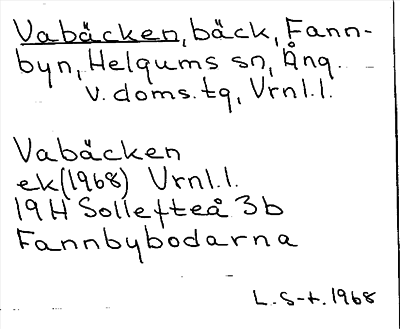 Vabäcken, bäck, Fann-
byn, Helgums sn, Ång.
v. doms. tg, Vrnl.l.
Vabäcken
ek(1968) Vrnl.l.
19H Sollefteå 3b
Fannbybodarna
L. S-t. 1968